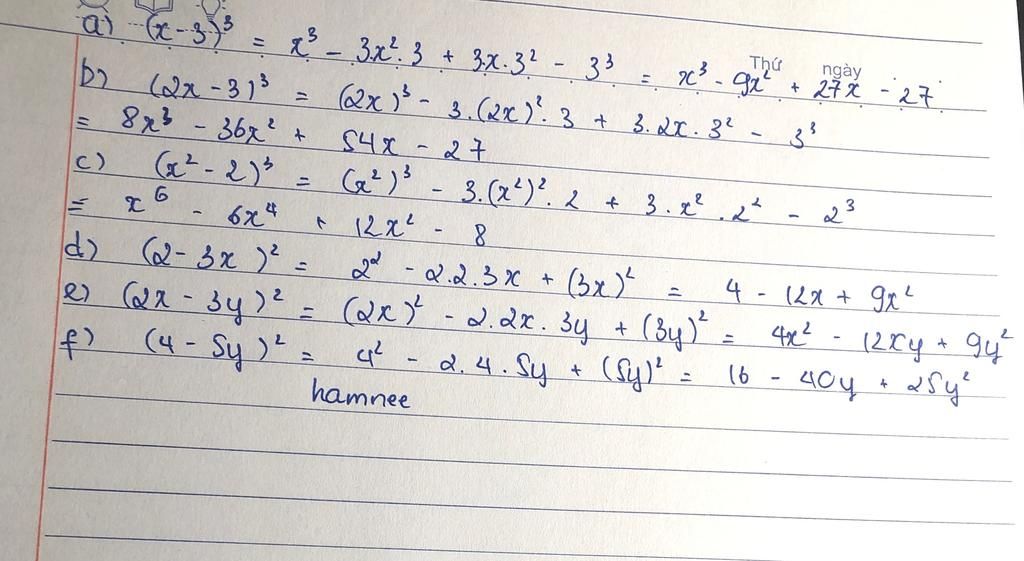 a) (x-3)³ = x³ - 3x².3 + 3x.3² - 3³ = x³ - 9x² + 27x - 27
Thứ ngày
b) (2x-3)³ = (2x)³ - 3.(2x)².3 + 3.2x.3² - 3³
= 8x³ - 36x² + 54x - 27
c) (x²-2)³ = (x²)³ - 3.(x²)².2 + 3.x².2² - 2³
= x⁶ - 6x⁴ + 12x² - 8
d) (2-3x)² = 2² - 2.2.3x + (3x)² = 4 - 12x + 9x²
e) (2x-3y)² = (2x)² - 2.2x.3y + (3y)² = 4x² - 12xy + 9y²
f) (4-5y)² = 4² - 2.4.5y + (5y)² = 16 - 40y + 25y²
hamnee